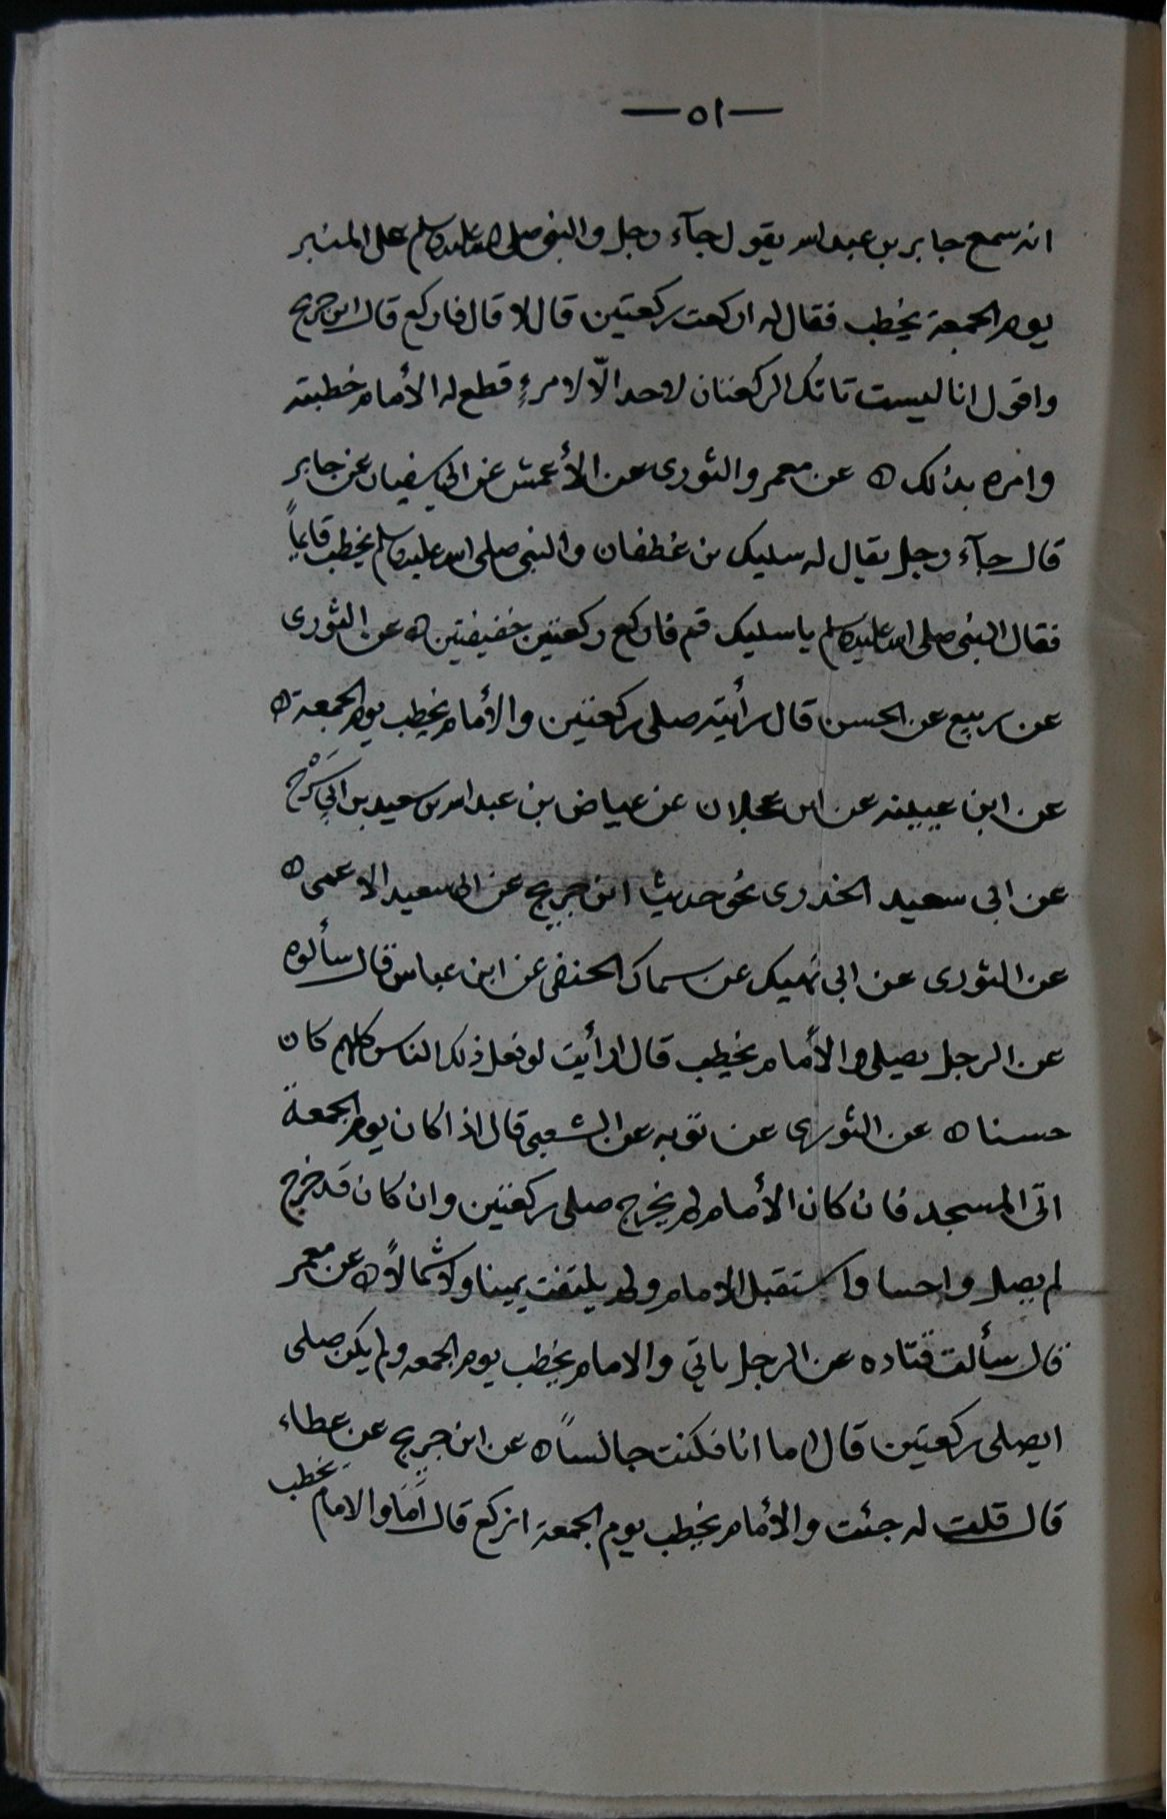 —٥١—
انه سمع جابر بن عبدالله يقول جآء رجل والنبي صلى الله عليه وسلم على المنبر
يوم الجمعة يخطب فقال له اركعت ركعتين قال لا قال فاركع قال ابن جريج
واقول انا ليست تانك الركعتان لاحد الّا لامرءٍ قطع له الأمام خطبته
وامره بذلك ه عن معمر والثورى عن الأعمش عن ابي سفيان عن جابر
قال جآء رجل يقال له سليك من غطفان والنبي صلى الله عليه وسلم يخطب قايماً
فقال النبي صلى الله عليه وسلم يا سليك قم فاركع ركعتين خفيفتين ه عن الثورى
عن ربيع عن الحسن قال رأيته صلى ركعتين والأمام يخطب يوم الجمعة ه
عن ابن عيينه عن ابن عجلان عن عياض بن عبدالله بن سعيد بن ابي سَرْح
عن ابى سعيد الخدرى نحو حديث ابن جريج عن ابى سعيد الاعمى ه
عن الثورى عن ابى نهيك عن سماك الحنفى عن ابن عباس قال سألوه
عن الرجل يصلى والأمام يخطب قال ارأيت لو فعل ذلك الناس كلهم كان
حسنا ه عن الثورى عن توبه عن الشعبى قال اذا كان يوم الجمعة
اتى المسجد فان كان الأمام لم يخرج صلى ركعتين وان كان قد خرج
لم يصل واحسا واستقبل الامام ولم يلتفت يمينا ولا شمالاً ه عن معمر
قال سألت قتاده عن الرجل ياتي والامام يخطب يوم الجمعه ولم يكن صلى
ايصلى ركعتين قال اما انا فكنت جالساً ه عن ابن جريج عن عطاء
قال قلت له جئت والأمام يخطب يوم الجمعة اتركع قال أمّا والامام يخطب